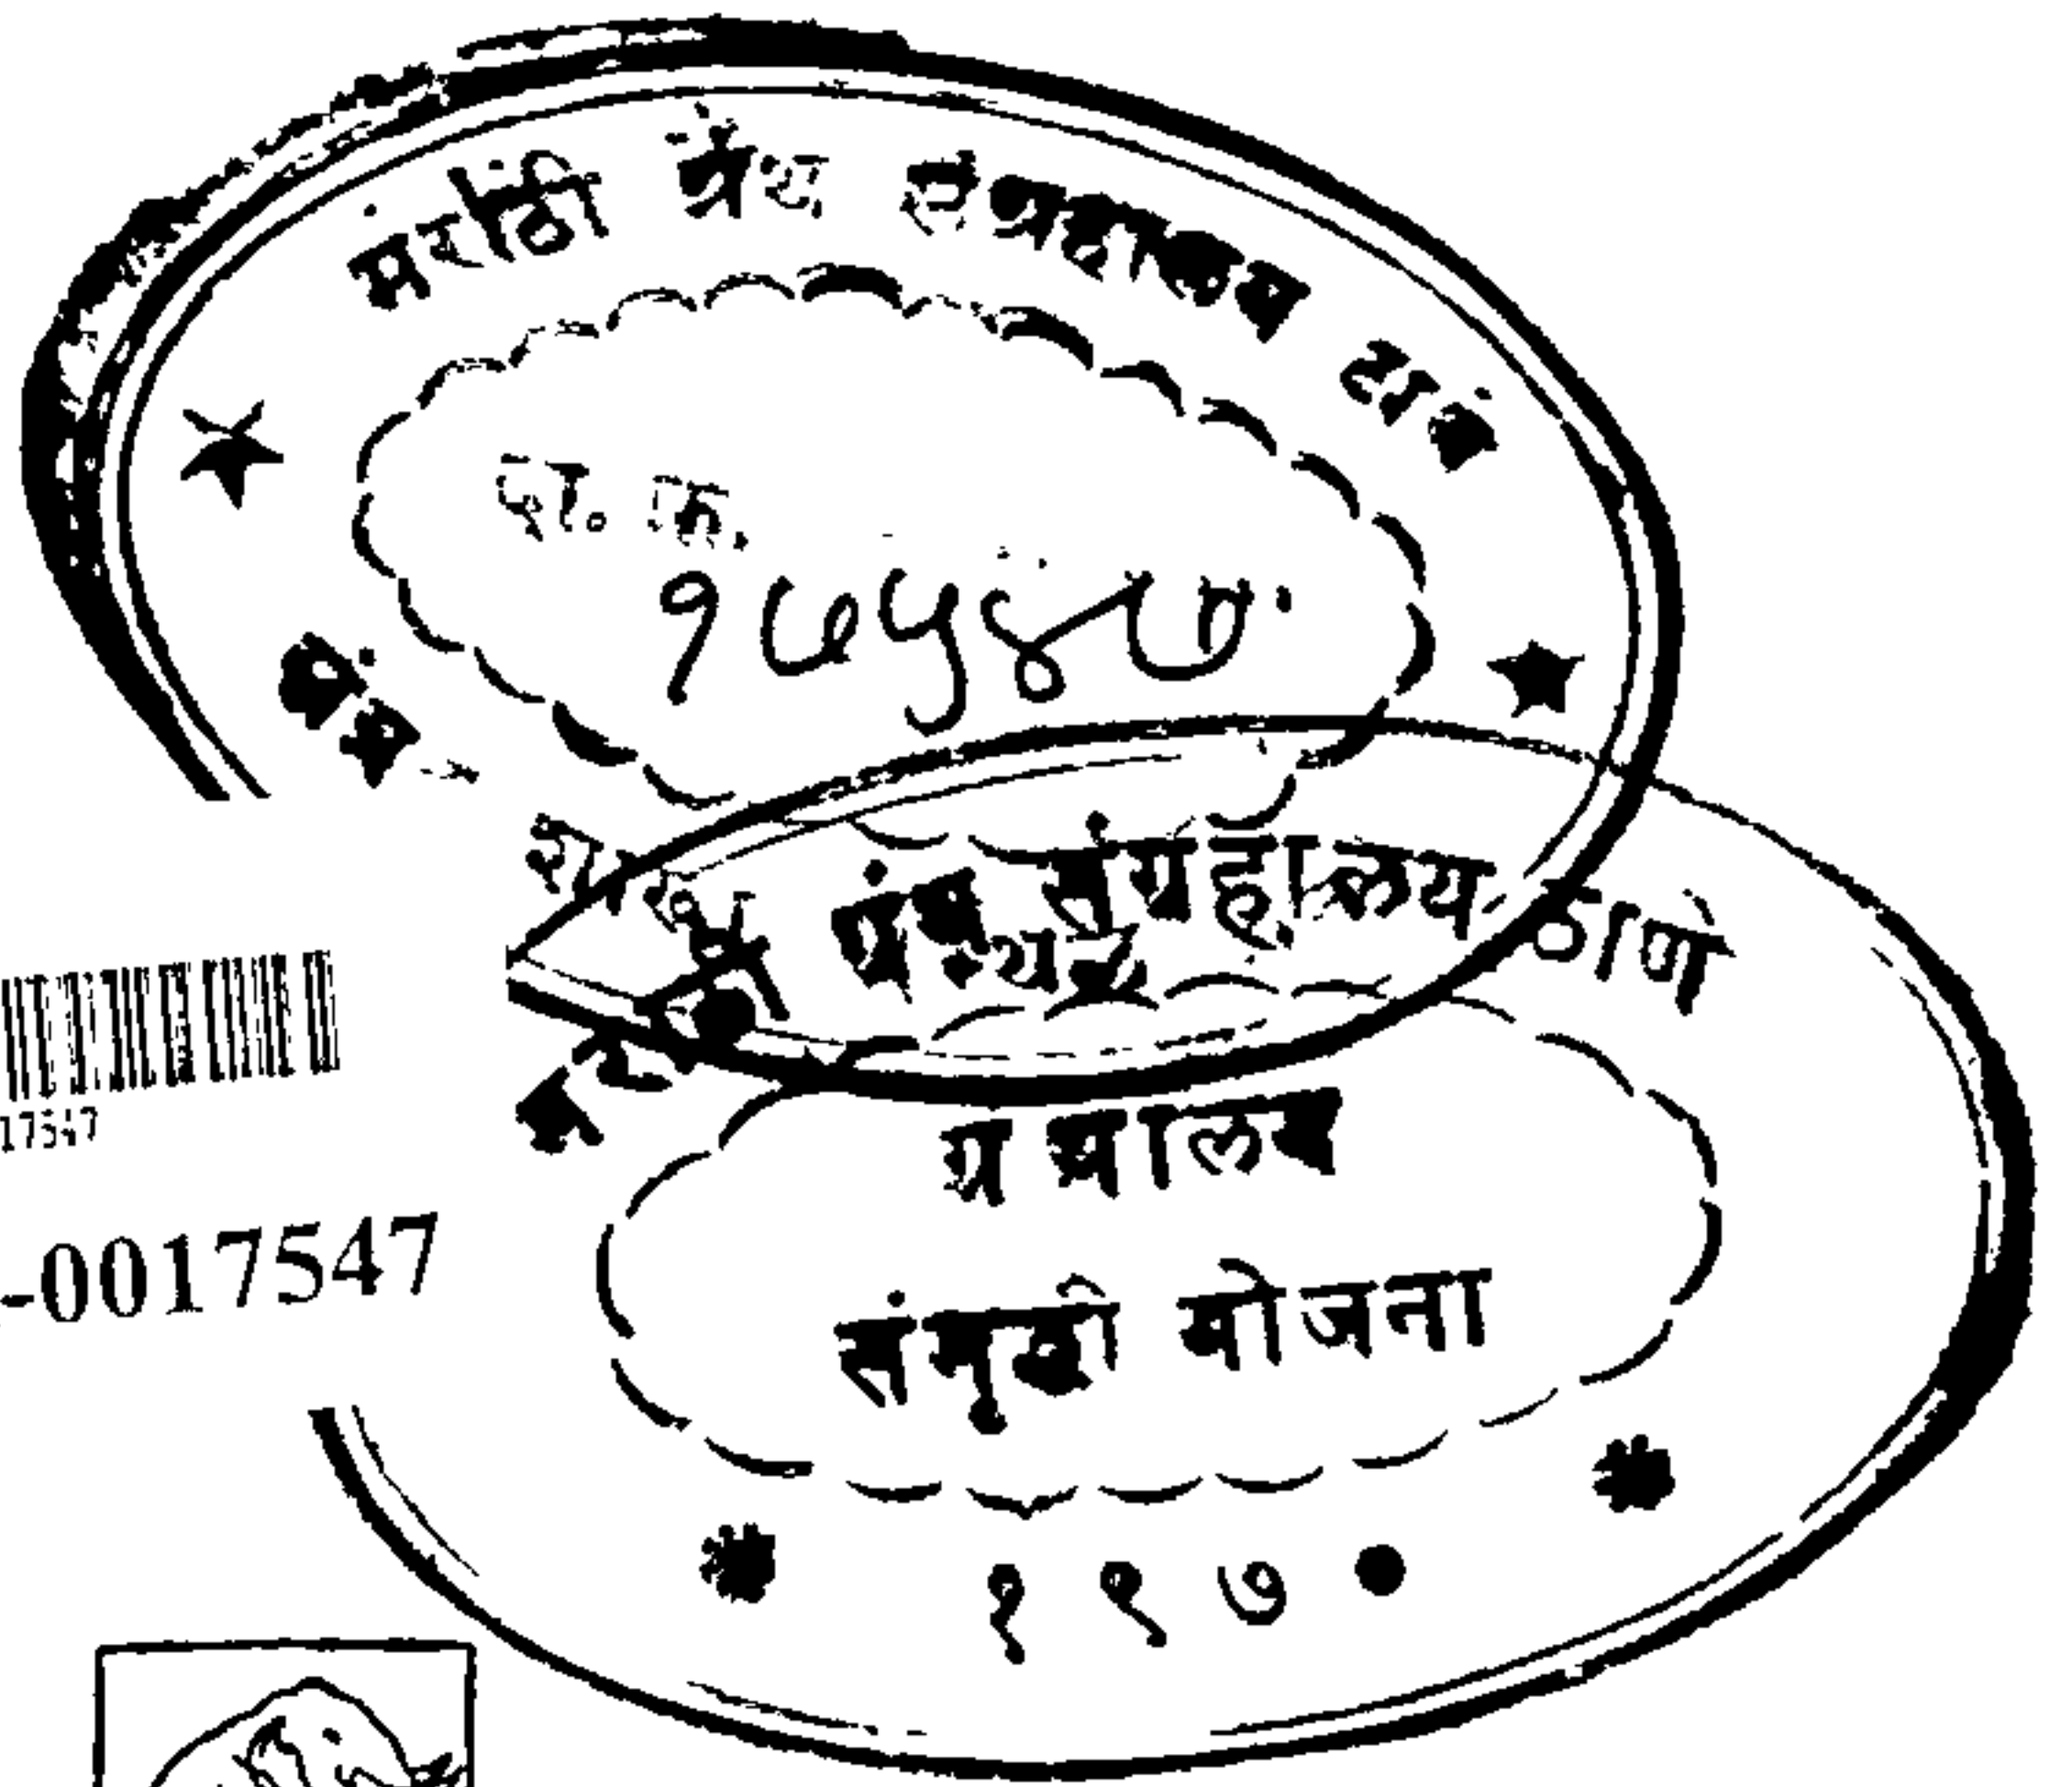 मराठी ग्रंथ संग्रहालय ठाणें
दा. क्र.
१७५४७
मराठी ग्रंथ संग्रहालय ठाणे
17547
-0017547
ग्रंथालय
संमृद्धी योजना
१९७०